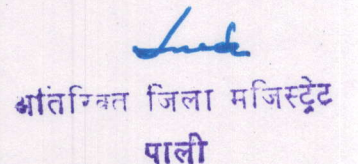 अतिरिक्त जिला मजिस्ट्रेट
पाली